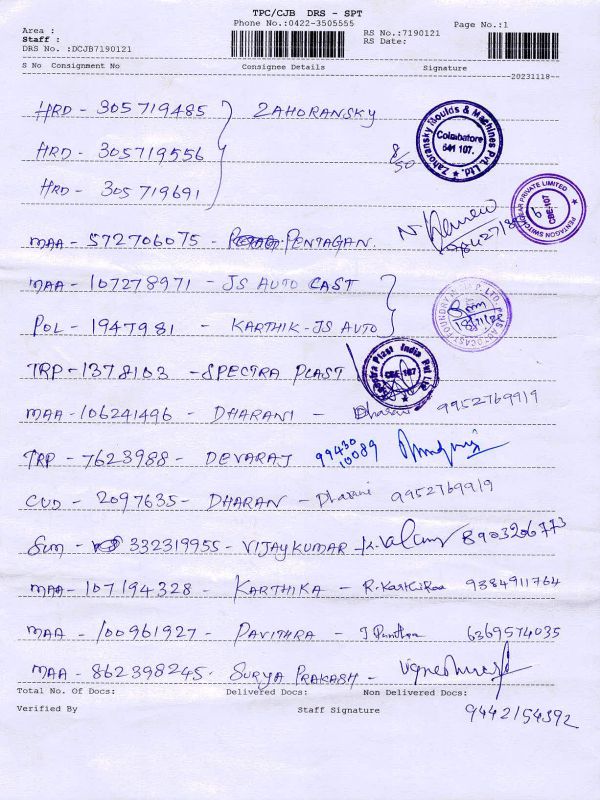 TPC/CJB DRS - SPT
Phone No.:0422-3505555
Page No.:1
Area :
Staff :
DRS No. :DCJB7190121
RS No.:7190121
RS Date:
S No Consignment No Consignee Details Signature
20231118
HRD - 305719485 ZAHORANSKY
HRD - 305719556
HRD - 305719691
8/50
Zahoransky Moulds & Machines Pvt. Ltd.
Coimbatore
641 107.
MAA - 572706075 - PENTAGAN.
PENTAGON SWITCHGEAR PRIVATE LIMITED
MAA - 107278971 - JS AUTO CAST
POL - 1947981 - KARTHIK - JS AUTO
TRP - 1378103 - SPECTRA PLAST
Spectra Plast India Pvt Ltd
CBE 107
MAA - 106241496 - DHARANI - Dharani 9952769919
TRP - 7623988 - DEVARAJ 99430
10089
CUD - 2097635 - DHARAN - Dharani 9952769919
332319955 - VIJAYKUMAR 8903206773
MAA - 107194328 - KARTHIKA - 9384911764
MAA - 100961927 - PAVITHRA - 6369574035
MAA - 862398245 - SURYA PRAKASH -
Total No. Of Docs: Delivered Docs: Non Delivered Docs:
Verified By Staff Signature
9442154392